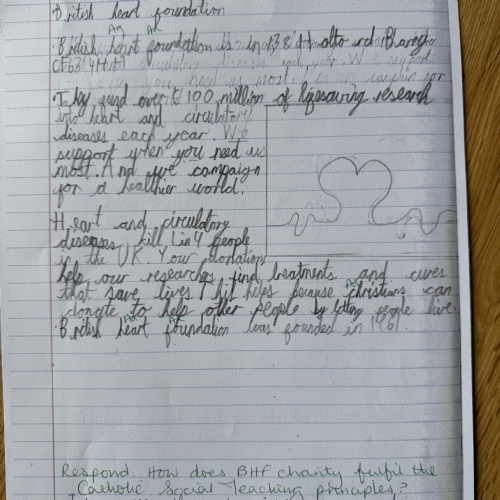 ·British heart foundation
·British heart foundation is in 138
CF63 4HH
·They fund over £100 million of lifesaving research
into heart and circulatory
diseases each year. We
support when you need us
most. And we campaign
for a healthier world.
Heart and circulatory
diseases kill 1 in 4 people
in the UK. Your donation
help our researches find treatments and cures
that save lives This helps because christians can
dongte to help other people by letting people live.
·British heart foundation was founded in 1961.
Respond: How does BHF charity fulfil the
Catholic Social Teaching principles?